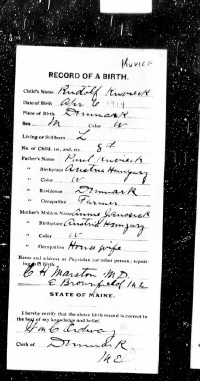 Musick
RECORD OF A BIRTH.
Child's Name Rudolf Musick
Date of Birth Apr 6 1919
Place of Birth Denmark
Sex M Color W
Living or Stillborn L
No. of Child, 1st, 2nd, etc. 8th
Father's Name Paul Musick
" Birthplace Austria Hungary
" Color W
" Residence Denmark
" Occupation Farmer
Mother's Maiden Name Annie
" Birthplace Austria Hungary
" Color W
" Occupation Housewife
Name and address of Physician (or other person) reporting said Birth.
C H Marston M.D.
E Brownfield Me
STATE OF MAINE.
I hereby certify that the above birth record is correct to the best of my knowledge and belief.
Clerk of Denmark
ME